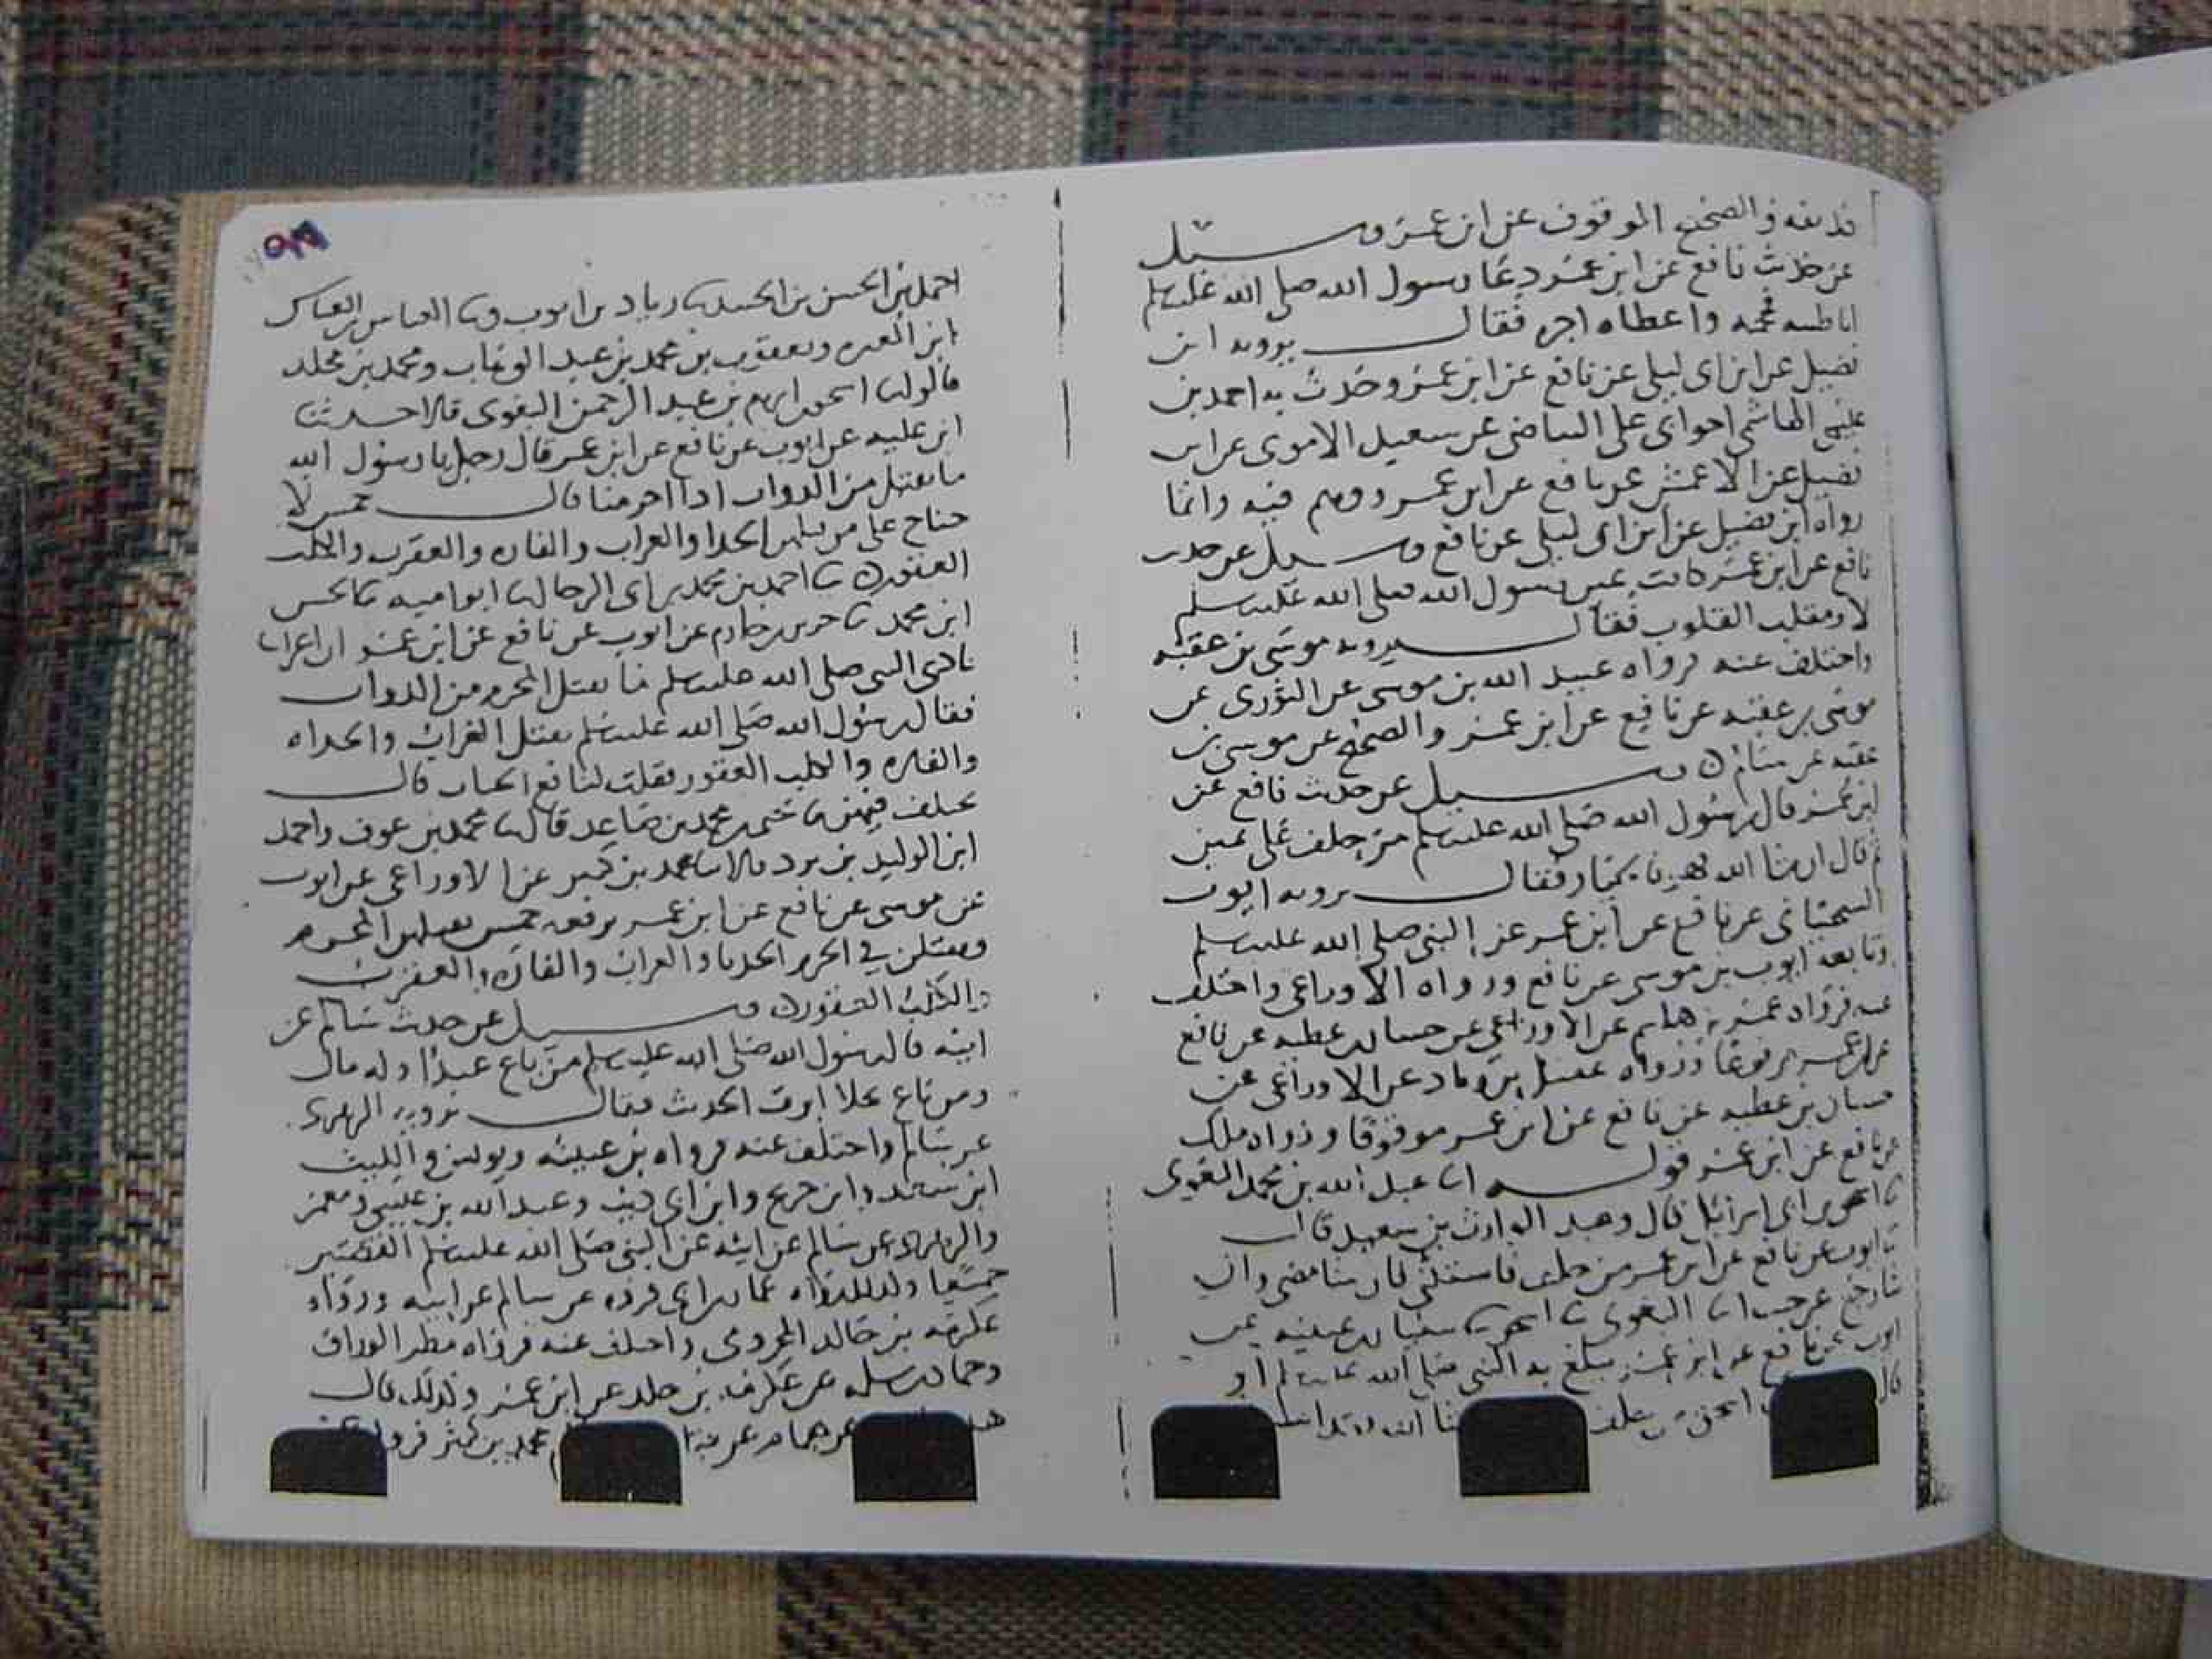 فرفعه والصحيح الموقوف عن ابن عمر وسئل
عن حديث نافع عن ابن عمر دعا رسول الله صلى الله عليه وسلم
ابا طيبه فحجمه واعطاه اجره فقال يرويه ابن
فضيل عن ابن ابي ليلى عن نافع عن ابن عمر وحدث به احمد بن
على الهاشمي اخو ابي على البياضي عن سعيد الاموي عن ابن
فضيل عن الاعمش عن نافع عن ابن عمر ووهم فيه وانما
رواه ابن فضيل عن ابن ابي ليلى عن نافع وسئل عن حديث
نافع عن ابن عمر كانت يمين رسول الله صلى الله عليه وسلم
لا ومقلب القلوب فقال يرويه موسى بن عقبه
واختلف عنه فرواه عبيد الله بن موسى عن الثوري عن
موسى بن عقبه عن نافع عن ابن عمر والصحيح عن موسى بن
عقبه عن سالم وسئل عن حديث نافع عن
ابن عمر قال رسول الله صلى الله عليه وسلم من حلف على يمين
ثم قال ان شا الله فهو بالخيار فقال يرويه ايوب
السختياني عن نافع عن ابن عمر عن النبي صلى الله عليه وسلم
وتابعه ايوب بن موسى عن نافع ورواه الاوزاعي واختلف
عنه فرواه عمر بن هاشم عن الاوزاعي عن حسان بن عطيه عن نافع
عن ابن عمر مرفوعا ورواه هقل بن زياد عن الاوزاعي عن
حسان بن عطيه عن نافع عن ابن عمر موقوفا ورواه ملك
عن نافع عن ابن عمر قوله انا عبد الله بن محمد البغوي
نا اسحق بن ابي اسرائيل قال وعبد الوارث بن سعيد قال
نا ايوب عن نافع عن ابن عمر من حلف فاستثنى فان شا مضى وان
شا رجع غير حنث انا البغوي نا اسحق نا سفيان بن عيينه عن
ايوب عن نافع عن ابن عمر يبلغ به النبي صلى الله عليه وسلم او
قال اسحق من حلف
احمد بن الحسن بن الجنيد نا زياد بن ايوب ونا العباس بن العباس
ابن المغيره ويعقوب بن محمد بن عبد الوهاب ومحمد بن مخلد
قالوا نا اسحق بن ابرهيم بن عبد الرحمن البغوي قالا حدثنا
ابن عليه عن ايوب عن نافع عن ابن عمر قال رجل يا رسول الله
ما نقتل من الدواب اذا احرمنا قال خمس لا
جناح على من قتلهن الحدا والغراب والفاره والعقرب والكلب
العقور نا احمد بن محمد بن ابي الرجال نا ابو اميه نا حسين
ابن محمد نا جرير بن حازم عن ايوب عن نافع عن ابن عمر ان اعرابيا
نادى النبي صلى الله عليه وسلم ما يقتل المحرم من الدواب
فقال رسول الله صلى الله عليه وسلم يقتل الغراب والحداه
والفاره والكلب العقور فقلت لنافع الحيات قال
يختلف فيهن نا يحيى بن محمد بن صاعد قال نا محمد بن عوف واحمد
ابن الوليد بن برد قالا نا محمد بن كثير عن الاوزاعي عن ايوب
بن موسى عن نافع عن ابن عمر يرفعه خمس يقتلهن المحرم
ويقتلن في الحرم الحديا والغراب والفاره والعقرب
والكلب العقور وسئل عن حديث سالم عن
ابيه قال رسول الله صلى الله عليه وسلم من باع عبدا وله مال
ومن باع نخلا ابرت الحديث فقال يرويه الزهري
عن سالم واختلف عنه فرواه بن عيينه ويونس والليث
ابن سعد وابن جريج وابن ابي ذيب وعبد الله بن عيسى ومعمر
والزهري عن سالم عن ابيه عن النبي صلى الله عليه وسلم القصتين
جميعا وكذلك رواه عمان بن ابي فروه عن سالم عن ابيه ورواه
عكرمه بن خالد المخزومي واختلف عنه فرواه مطر الوراق
وحماد بن سلمه عن عكرمه بن خالد عن ابن عمر وكذلك قال
عن همام محمد بن كثير